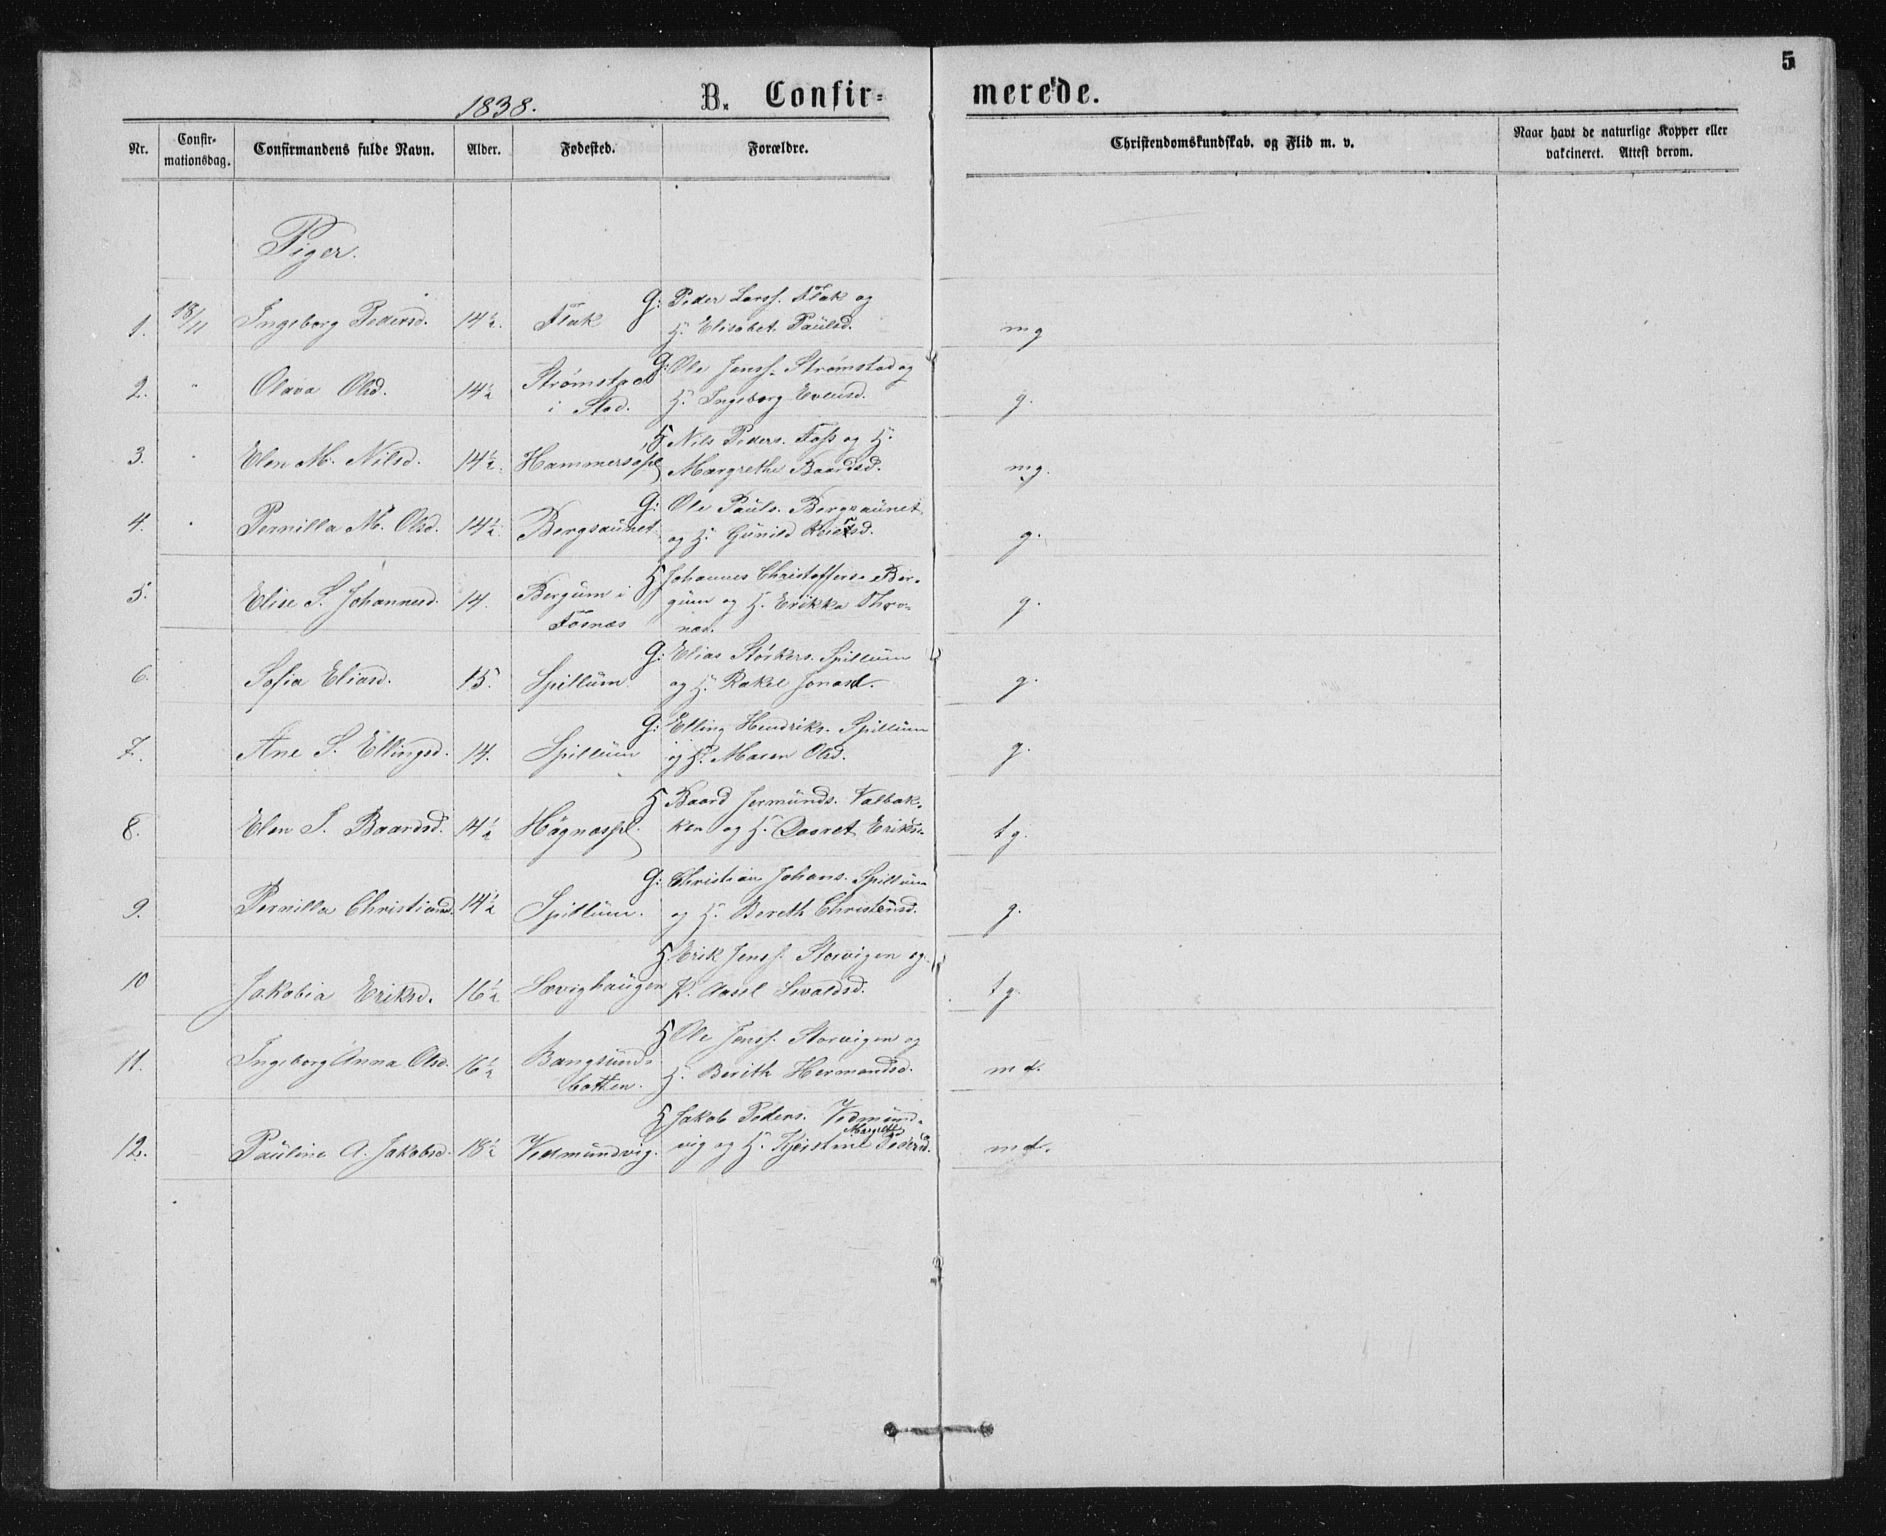 5
1838.
B. Confir-
merede.
Nr.
Confir-
mationsdag.
Confirmandens fulde Navn.
Alder.
Fødested.
Forældre.
Christendomskundskab. og Flid m. v.
Naar havt de naturlige Kopper eller
vakcineret. Attest derom.
Piger.
1. 18/11 Ingeborg Pedersd. 14½. Flak G: Peder Larss. Flak og
H. Elisabet Paulsd. mg
2. " Olava Olsd. 14½ Strømstad G: Ole Jenss. Strømstad og
i Stod. H. Ingeborg Evensd. g.
3. " Elen M. Nilsd. 14½. Hammersøpl H Nils Peders. Foss og H.
Margrethe Baardsd. mg.
4. " Pernilla M. Olsd. 14½. Bergsaunet G: Ole Pauls. Bergsaunet
og H. Gunild d. g.
5. Elise S. Johannesd. 14. Bergum i H Johannes Christoffers. Ber-
Fosnæs gum og H. Erikka Thro-
nsd. g.
6. Sofia Eliasd. 15. Spillum G: Elias Størkers. Spillum
og H. Rakel Jonasd. g.
7. Ane S. Ellingsd. 14. Spillum G: Elling Hendriks. Spillum
og H. Maren Olsd. g.
8. Elen S. Baardsd. 14½ Høgnæspl. H Baard Jermunds. Valbak-
ken og H. Dorret Eriksd. tg.
9. Pernilla Christiansd. 14½ Spillum. G: Christian Johans. Spillum
og H. Bereth Christensd. g.
10 Jakobia Eriksd. 16½ Sævighaugen H. Erik Jenss. Storvigen og
K. Aasel Sivaldsd. tg.
11. Ingeborg Anna Olsd. 16½ Bangsunds H Ole Jenss. Storvigen og
botten. H. Berith Hermandsd. md.
12. Pauline A. Jakobsd. 18½ Vedmundvig. H Jakob Peders. Vedmund-
Margrethe
vig og H. Kjerstine Pedersd. md.